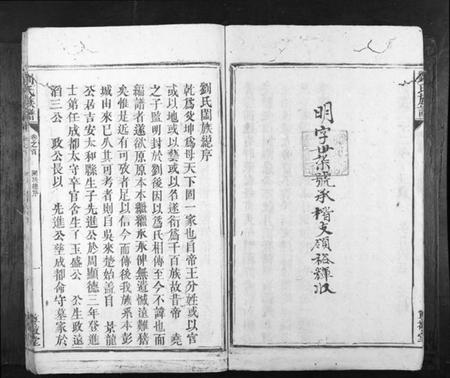 劉氏族譜
明字号承楷支領裕輝收
劉氏闔族總序
乾爲父坤爲母天下固一家也自帝王分姓或以官
或以地或以藝或以名遂衍爲千百族故昔帝 堯
之子監明封於劉後因以爲氏相傳至今不諱也而
編譜者遂欲原原本本繼繼承承俾無遺憾遠難稽
矣惟是近有可攷者足以信今而傳後我族系本彭
城由來已久其可考者則自吳來楚始諡目 景龍
公居吉安太和縣生子先進公於周顯德三年登進
士第任成都太守卒官舍生子玉盛公 公生政遠
消三公 政公長以 先進公葬成都命守墓家於
劉氏族譜
卷之首
敦敘堂